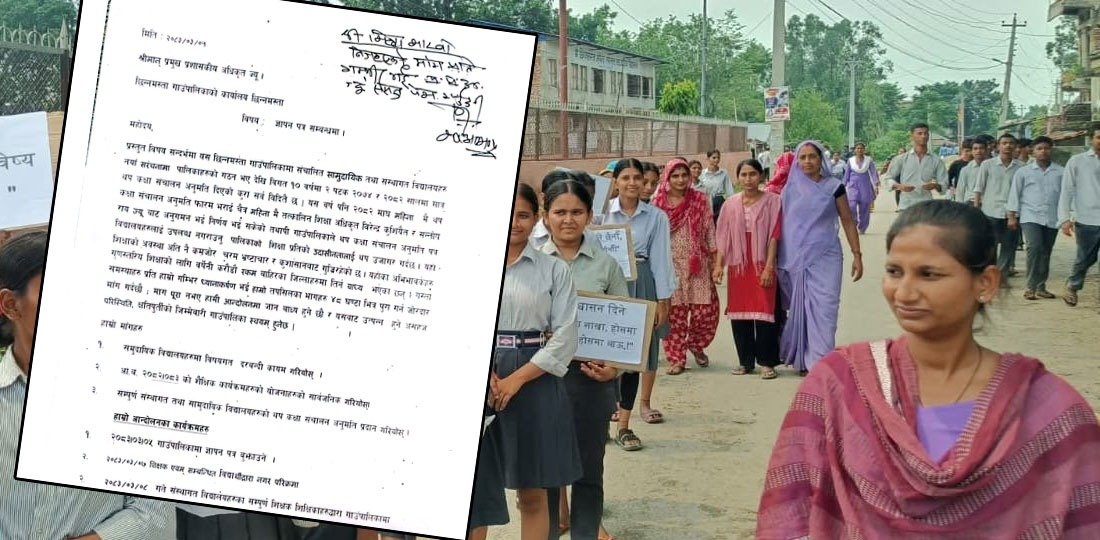 मिति : २०८३/०३/०५
श्रीमान् प्रमुख प्रशासकीय अधिकृत ज्यू ।
छिन्नमस्ता गाउँपालिकाको कार्यालय छिन्नमस्ता
विषय : ज्ञापन पत्र सम्बन्धमा ।
महोदय,
प्रस्तुत विषय सन्दर्भमा यस छिन्नमस्ता गाउँपालिकामा संचालित सामुदायिक तथा संस्थागत विद्यालयहरु
नयाँ संरचनामा पालिकाहरुको गठन भए देखि विगत १० वर्षमा २ पटक २०७४ र २०८१ सालमा मात्र
कक्षा संचालन अनुमति दिएको कुरा सर्व विदितै छ । यस वर्ष पनि २०८२ माघ महिना मै थप
कक्षा संचालन अनुमति फाराम भराई चैत्र महिना मै तत्कालिन शिक्षा अधिकृत बिरेन्द्र कुशियैत र सन्तोष
राय ज्यू बाट अनुगमन भई निर्णय भई सकेको तथापी गाउँपालिकाले थप कक्षा संचालन अनुमति पत्र
विद्यालयहरुलाई उपलब्ध नगराउनु पालिकाको शिक्षा प्रतिको उदासीनतालाई थप उजागर गर्दछ । यहाँ
शिक्षाको अवस्था अति नै कमजोर चरम भ्रष्टाचार र कुशासनबाट गुज्रिरहेको छ । यहाँका अभिभावकहरु
गुणस्तरीय शिक्षाको लागि वर्षेनी करोडौं रकम बाहिरका जिल्लाहरुमा तिर्न बाध्य भएका छन् । यस्ता
समस्याहरु प्रति हाम्रो गम्भिर ध्यानाकर्षण भई हाम्रो तपसिलका मागहरु ४८ घण्टा भित्र पुरा गर्न जोरदार
माग गर्दछौं । माग पूरा नभए हामी आन्दोलनमा जान बाध्य हुने छौं र यसबाट उत्पन्न हुने असहज
परिस्थिति, क्षतिपुर्तीको जिम्मेवारी गाउँपालिका स्वयम् हुनेछ ।
हाम्रो मांगहरु
१. समुदायिक विद्यालयहरुमा विषयगत दरवन्दी कायम गरियोस् ।
२. आ.व. २०८२।०८३ को शैक्षिक कार्यक्रमहरुको योजनाहरुको सार्वजनिक गरियोस्
३. सम्पुर्ण संस्थागत तथा सामुदायिक विद्यालयहरुको थप कक्षा संचालन अनुमति प्रदान गरियोस् ।
हाम्रो आन्दोलनका कार्यक्रमहरु
१. २०८३।०३।०५ गाउँपालिकामा ज्ञापन पत्र बुझाउने ।
२. २०८३/०३/०७ शिक्षक एवम् सम्बन्धित विद्यार्थीद्वारा नगर परिक्रमा
३. २०८३/०३/०८ गते संस्थागत विद्यालयहरुका सम्पुर्ण शिक्षक शिक्षिकाहरुद्वारा गाउँपालिकामा
विष्य
"
दिने
होसमा
होसमा आऊ.!"